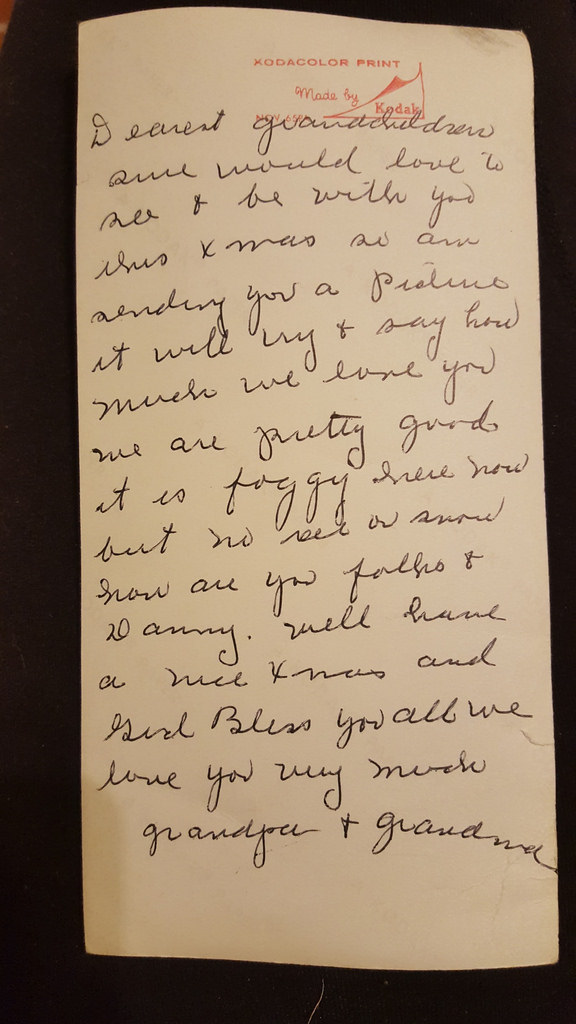 KODACOLOR PRINT
Made by Kodak
NOV
Dearest grandchildren
sure would love to
see & be with you
this Xmas so am
sending you a Picture
it will try & say how
much we love you
we are pretty good
it is foggy here now
but no ice or snow
how are you folks &
Danny. Well have
a nice Xmas and
God Bless you all we
love you very much
grandpa & grandma